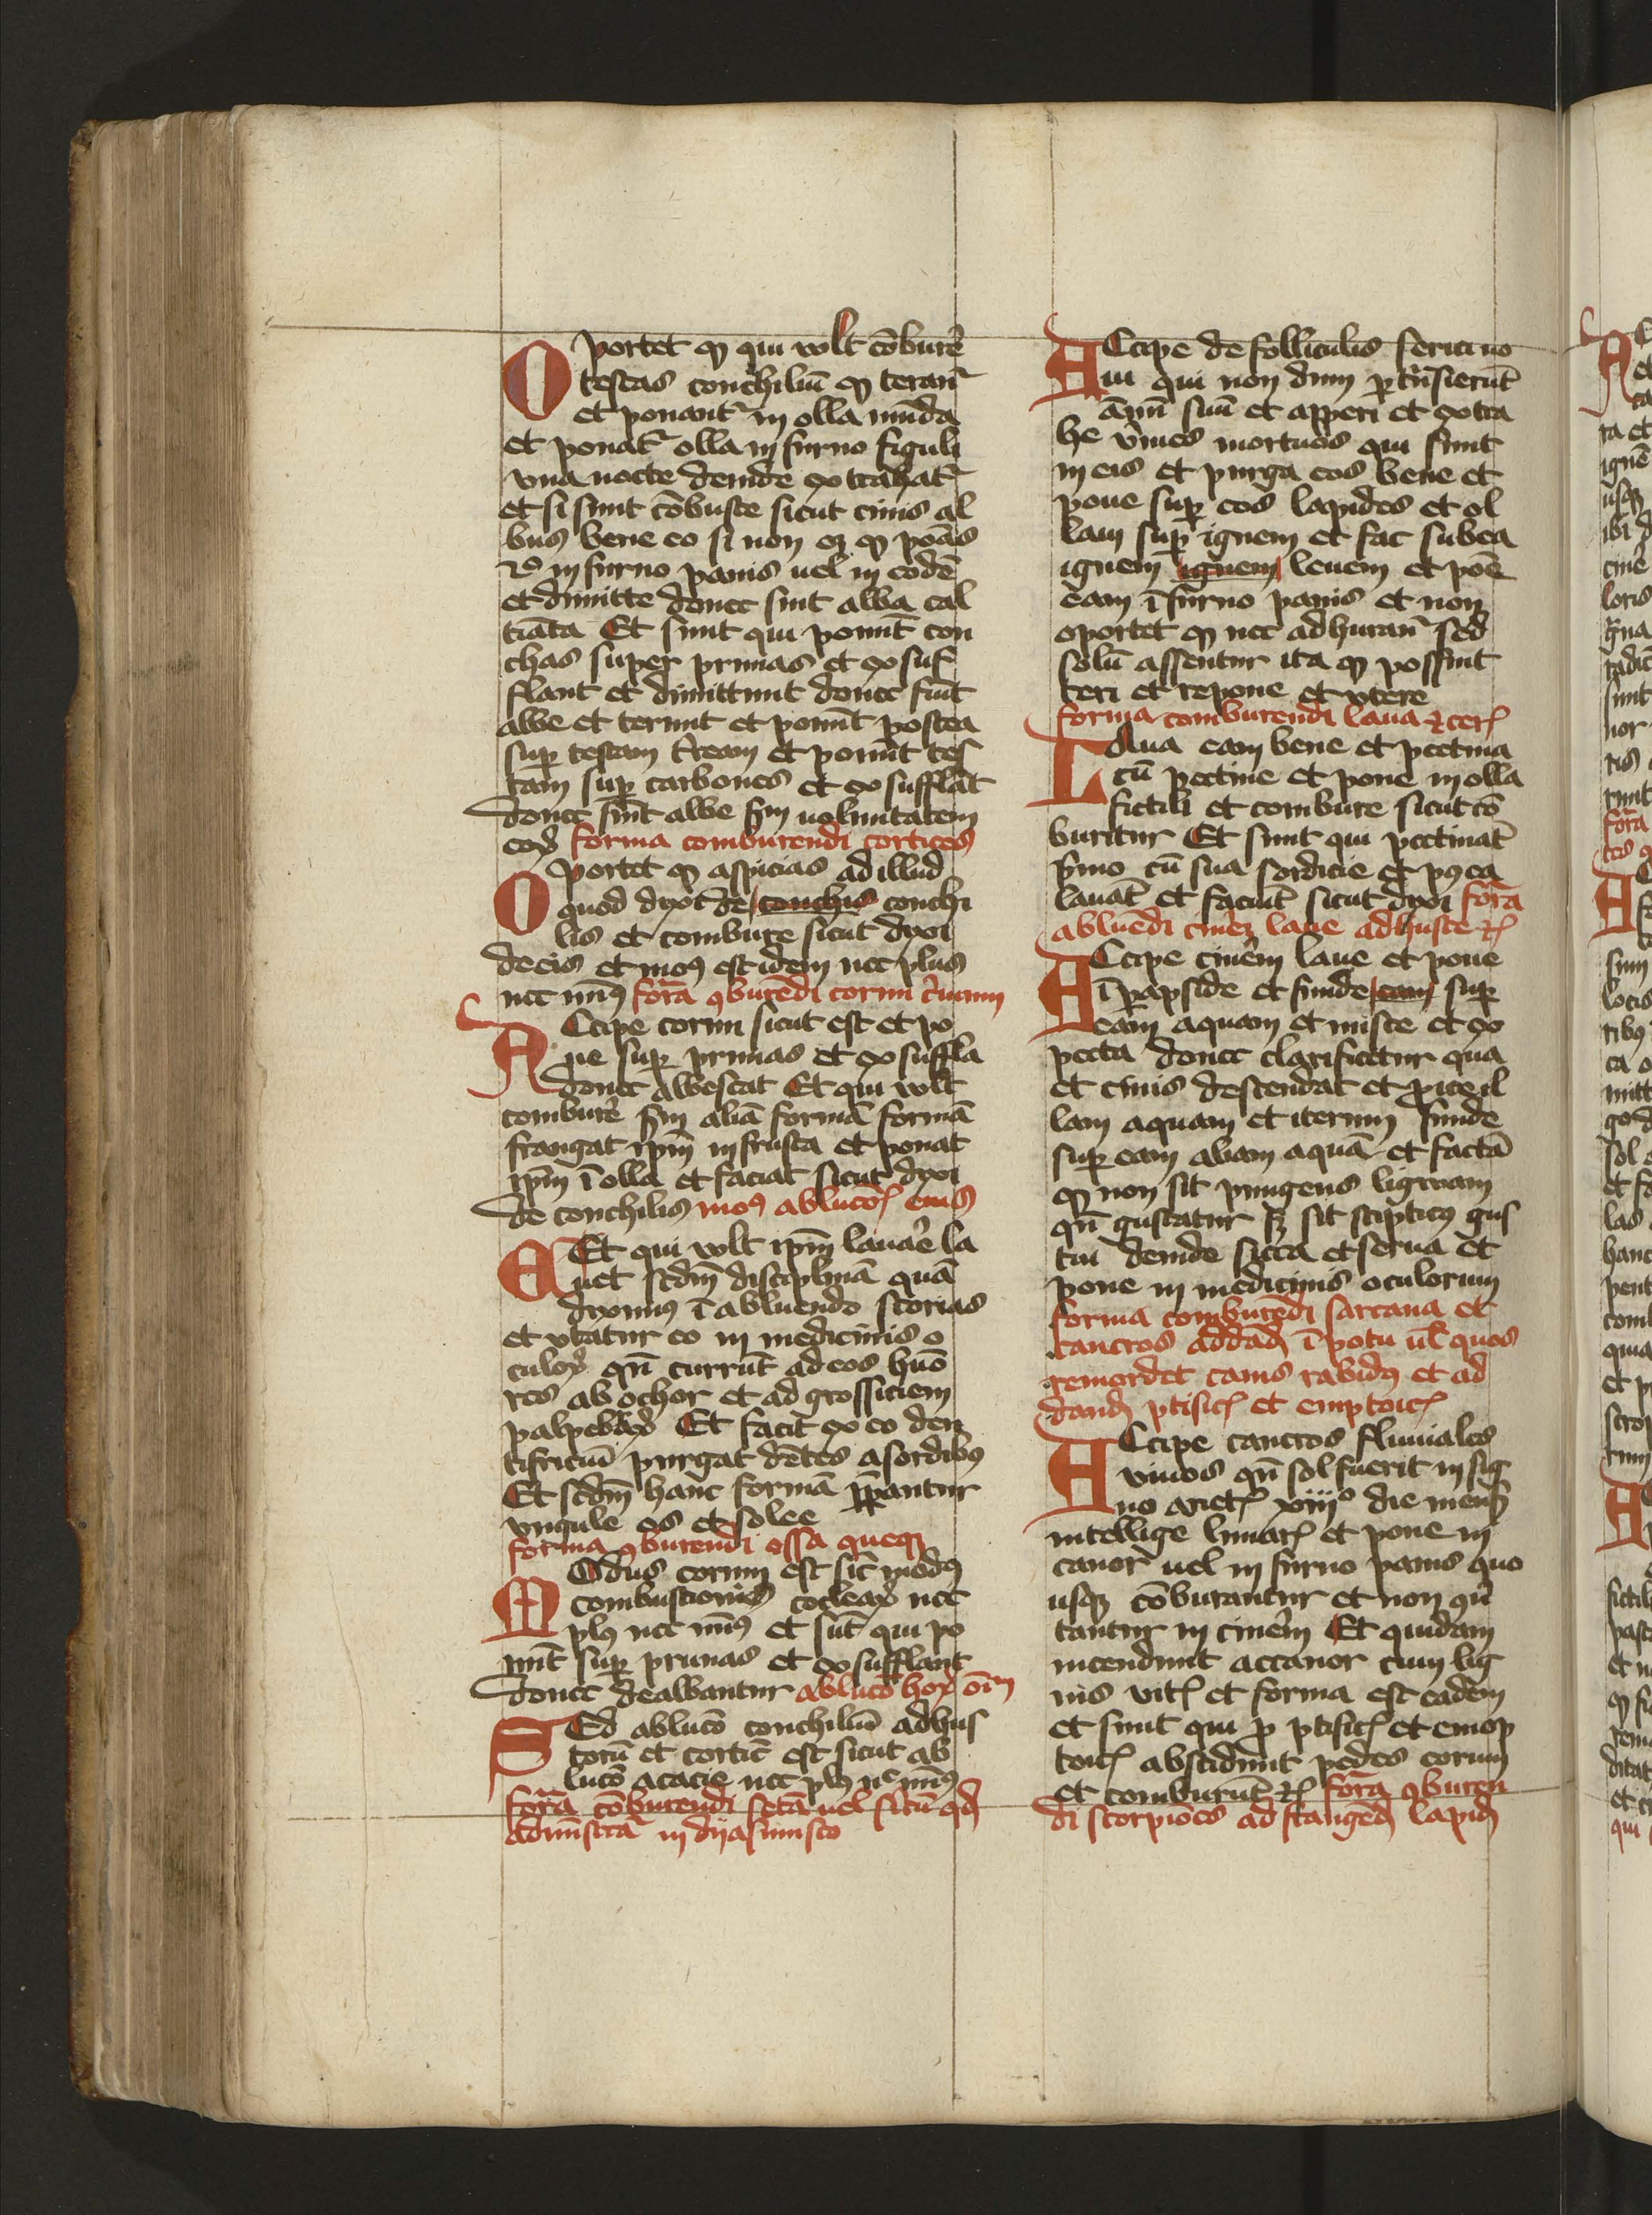 Oportet ꝙ qui volt cōburẽ
testas conchiliū ꝙ teranť
et ponantˀ in olla munda
et ponatˀ olla in furno figuli
vna nocte deinde extrahatˀ
et si sunt cōbuste sicut cinis al
bus bene eo si non oꝫ ꝙ ponas
in furno panis uel in eodē
et dimitte donec sint alba cal
cinata Et sunt qui ponunt con
chas super prunas et exsuf
flant et dimittunt donec sint
albe et terunt et ponūt postea
suꝑ testam ferream et ponūt tes
tam suꝑ carbones et exsufflāt
donec sint albe sm̄ uoluntatem
eoꝝ forma comburendi cortices
Oportet ꝙ aspicias ad illud
quod dixi de conchis conchi
lis et combure sicut dixi
de eis et mo9 est idem nec plus
nec min9 forā ꝯburēdi cornu ceruinum
Accipe cornu sicut est et po
ne suꝑ prunas et exsuffla
donec albescat Et qui volt
comburẽ sm̄ aliā formā formā
frangat ipm̄ in frusta et ponat
ipm̄ ī olla et faciat sicut dixi
de conchilis mo9 ablucōı̄s eius
Et qui volt ipm̄ lauaře la
uet scdm̄ disciplinā quā
diximus ī abluendo scorias
et vtatur eo in medicinis o
culoꝝ qn̄ currūt ad eos huō
res ab ochor et ad grossiciem
palpebraꝝ Et facit ex eo den
tifriciū purgat dētes a sordib9
Et scdm̄ hanc formā p̄parantur
vngule os et solee
forma ꝯburendi ossa queqꝫ
Modus eorum est sic̄ mod9
combustionis cocleaꝝ nec
pl9 nec min9 et sūt qui po
nūt suꝑ prunas et exsufflant
donec dealbantur ablucō hoꝝ oīm
Sed ablucō conchiliū adhus
torū et cortic̄ est sicut ab
lucō acacie nec pl9 nec min9
forā cōburendi setā uel siricū qd̄
admīscetˀ in dyasimisco
Accipe de folliculis sericino
rū qui non dum ꝑtrāsierūt
annū suū et apperi et extra
he v̄mes mortuos qui sunt
in eis et purga eos bene et
pone suꝑ eos lapides et ol
lam suꝑ ignem et fac sub ea
ignem ignem leuem et pōe
eam ī furno panis et non
oportet ꝙ nec adhuranť sed
solū assentur ita ꝙ possint
teri et repone et vtere
forma comburendi lana et ceť
Laua eam bene et pectina
cū pectine et pone in olla
fictili et combure sicut cō
buritur Et sunt qui pectināt
primo cū sua sordicie et p9ea
lauāt et faciūt sicut dixi forā
abluēdi cinerꝫ lane adhuste etc̄
Accipe cinēm lane et pone
ī parapside et funde eam suꝑ
eam aquam et misce et ex
pecta donec clarificetur qua
et cinis descendat et proice il
lam aquam et iterum funde
suꝑ eam aliam aquā et factā
ꝙ non sit pungens liguam
qn̄ gustatur sꝫ sit stiptic9 gus
tui deinde sicca et serua et
pone in medicinis oculorum
forma comburēdi sarcana et
cancros ad dand̄ ī potu ul̄ quos
remordet canis rabid9 et ad
dand̄ ptisic̄ et emptoic̄
Accipe cancros fluuiales
viuos qn̄ sol fuerit in sig
no ariet̄ xiiijo die mens̄
intellige lunar̄ et pone in
canor̄ uel in furno panis quo
usqꝫ cōburantur et non ꝯū
tantur in cinēm Et quidam
incendunt accanor cum lig
nis vit̄ et forma est eadem
et sunt qui ꝓ ptisic̄ et emop
toic̄ abscidunt pedes eorum
et comburūt etc̄ forā ꝯburen
di scorpiōes ad frangend̄ lapid̄